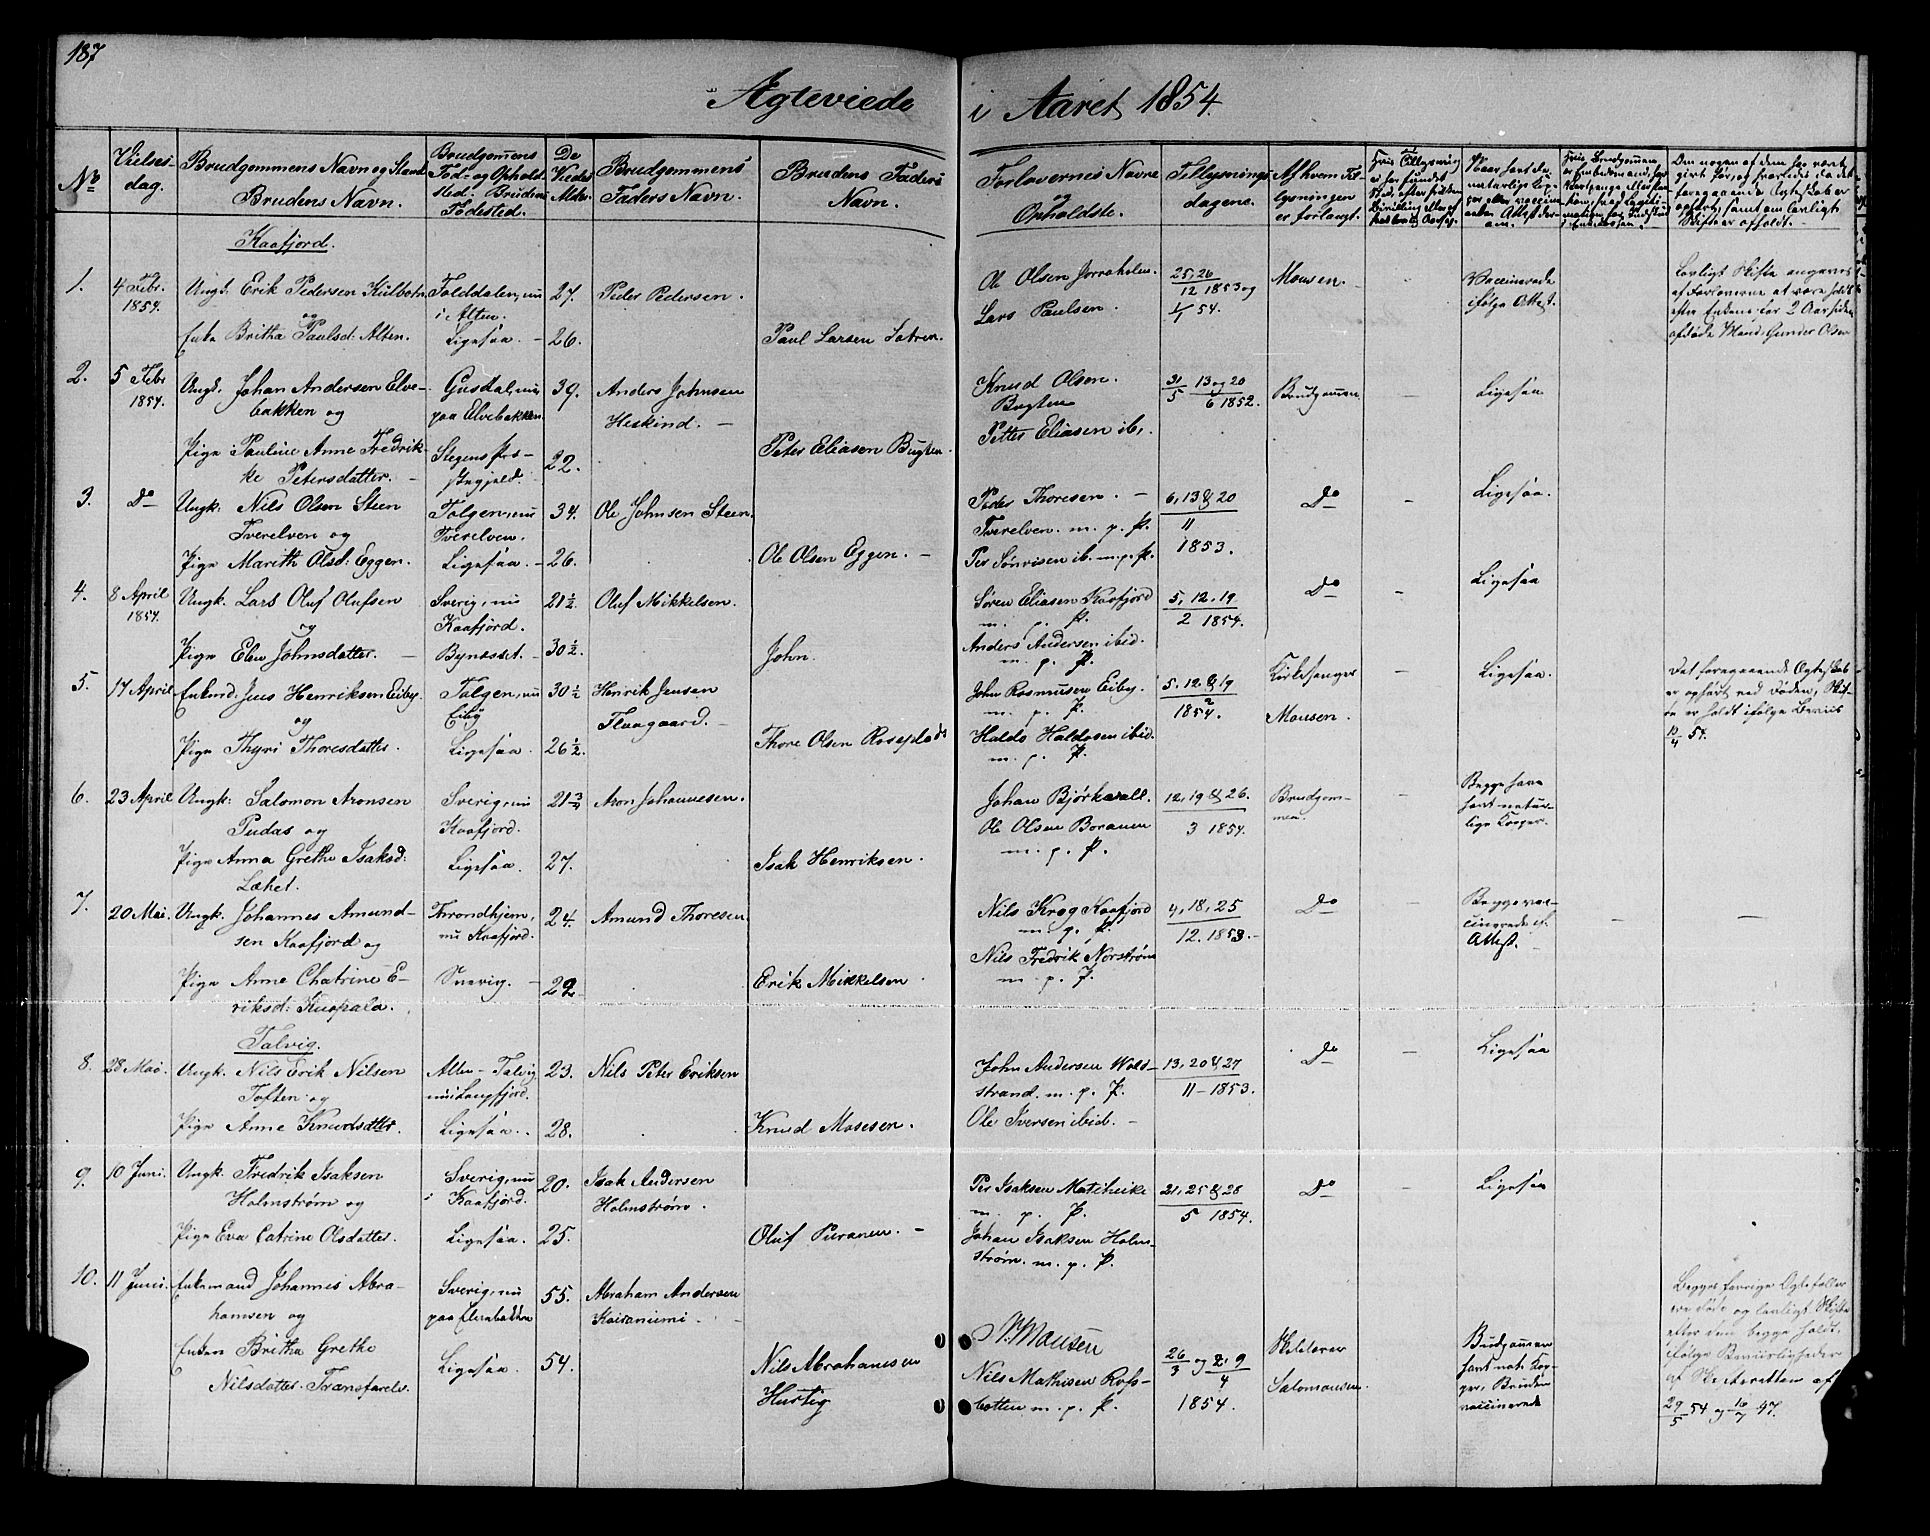 187
Ægteviede i Aaret 1854.
No
Vielses-dag.
Brudgommens Navn og Stand
Brudens Navn.
Brudgomens Fød- og Ophold Sted. Brudens Fødested.
De Viedes Alder.
Brudgommens Faders Navn.
Brudens Faders Navn.
Forlovernes Navne og Opholdste.
Tillysnings dagene.
Af hvem Lysningen er forlangt.
Kaafjord.
1. 4 Febr. 1854. Ungk. Erik Pedersen Kulbotn og Folddalen, nu i Alten. 27. Peder Pedersen.
Ole Olsen Jorraholm. Lars Paulsen. 25, 26/12 1853 og 1/1 54. Mousen. Vaccinerede ifølge Attest.
Enke Britha Paulsd: Alten. Ligesaa. 26. Paul Larsen
Lovligt Skifte angaves af Forloverne at være holdt efter Enkens for 2 Aar siden afdøde Mand Gunder Olsen
2. 5 Febr 1854. Ungk. Johan Andersen Elvebakken og Gusdal, nu paa Elvebakken. 39. Anders Johnsen Heskind.
Knud Olsen. Bugten Petter Eliasen ib. 31/5 13 og 20/6 1852. Brudgommen. Ligesaa
Pige Pauline Anne Fredrikke Petersdatter. Stegens Præstegjeld. 22. Peter Eliasen Bugten.
3. Do Ungk. Nils Olsen Steen Tverelven og Tolgen, nu Tverelven. 34. Ole Johnsen Steen.
Peder Thoresen. Tverelven. m. p. P. 6, 13 & 20/11 1853. Do Ligesaa.
Pige Marith Olsd: Eggen. Ligesaa. 26. Ole Olsen Eggen.
4. 8 April 1854. Ungk. Lars Oluf Olufsen og Sverig, nu Kaafjord. 21½ Oluf Mikkelsen.
Søren Eliasen Kaafjord m. p. P. Anders Andersen ibid. m. p. P. 5, 12, 19/2 1854. Do Ligesaa
Pige Elen Johnsdatter. Bynæsset. 30½. John.
5. 17 April Enkmd: Jens Henriksen Eiby. og Tolgen, nu Eiby 30½ Henrik Jensen Flaagaard.
John Rasmusen Eiby. m. p. P. Haldo Haldosen ibid. m. p. P. 5. 12. & 19/2 1854. Kirkesanger Mousen. Ligesaa.
Pige Thyri Thoresdatter. Ligesaa. 26½. Thore Olsen
Det foregaaende Ægteskab er ophørt ved Døden, Skifte er holdt ifølge Beviis 10/4 54.
6. 23 April Ungk: Salomon Aronsen Pudas og Sverig, nu Kaafjord. 21¾ Aron Johannesen.
Johan Bjørkvall. Ole Olsen Boranen m. p. P. 12, 19 & 26. 3 1854. Brudgommen. Begge have havt naturlige Kopper.
Pige Anna Grethe Isaksd: Læhet. Ligesaa. 27. Isak Henriksen.
7. 20 Mai. Ungk. Johannes Amundsen Kaafjord og Throndhjem, nu Kaafjord. 24. Amund Thoresen
Nils Krog Kaafjord m. p. P. Nils Fredrik Norstrøm m. p. P. 4, 18, 25 12. 1853. Do Begge vaccinerede if. Attest.
Pige Anne Chatrine Eriksd: Kuopala. Sverig. 22 Erik Mikkelsen
Talvig.
8. 28 Mai. Ungk. Nils Erik Nilsen Toften og Alten-Talvig nu i Langfjord. 23. Nils Peter Eriksen
John Andersen Woldstrand. m. p. P. Ole Iversen ibid. 13, 20 & 27 11 - 1853. Do Ligesaa
Pige Anne Knudsdatter. Ligesaa. 28. Knud Mosesen.
9. 10 Juni. Ungk. Fredrik Isaksen Holmstrøm og Sverig, nu i Kaafjord. 20. Isak Andersen Holmstrøm.
Per Isaksen Matiheike m. p. P. Johan Isaksen Holmstrøm. m. p. P. 21, 25 & 28 5 1854. Do Ligesaa
Pige Eva Catrine Olsdatter. Ligesaa. 25. Oluf Pieranen.
10. 11 Juni. Enkemand Johannes Abrahamsen og Sverig, nu paa Elvebakken 55. Abraham Andersen Kairaniemi
N. Mousen Nils Mathisen Rafsbotten m. p. P. 26/3 og 2. 9/4 1854. Skolelærer Salomonsen. Brudgommen havt nat: Kopper, Bruden vaccinerede
Enken Britha Grethe Nilsdatter. Transfarelv. Ligesaa. 54. Nils Abrahamsen Hurtig
Begges forrige Ægtefæller ere døde og lovligt Skifte efter dem begge holdt, ifølge Beviisligheder af Skifteretten af 29/5 54 og 16/7 47.